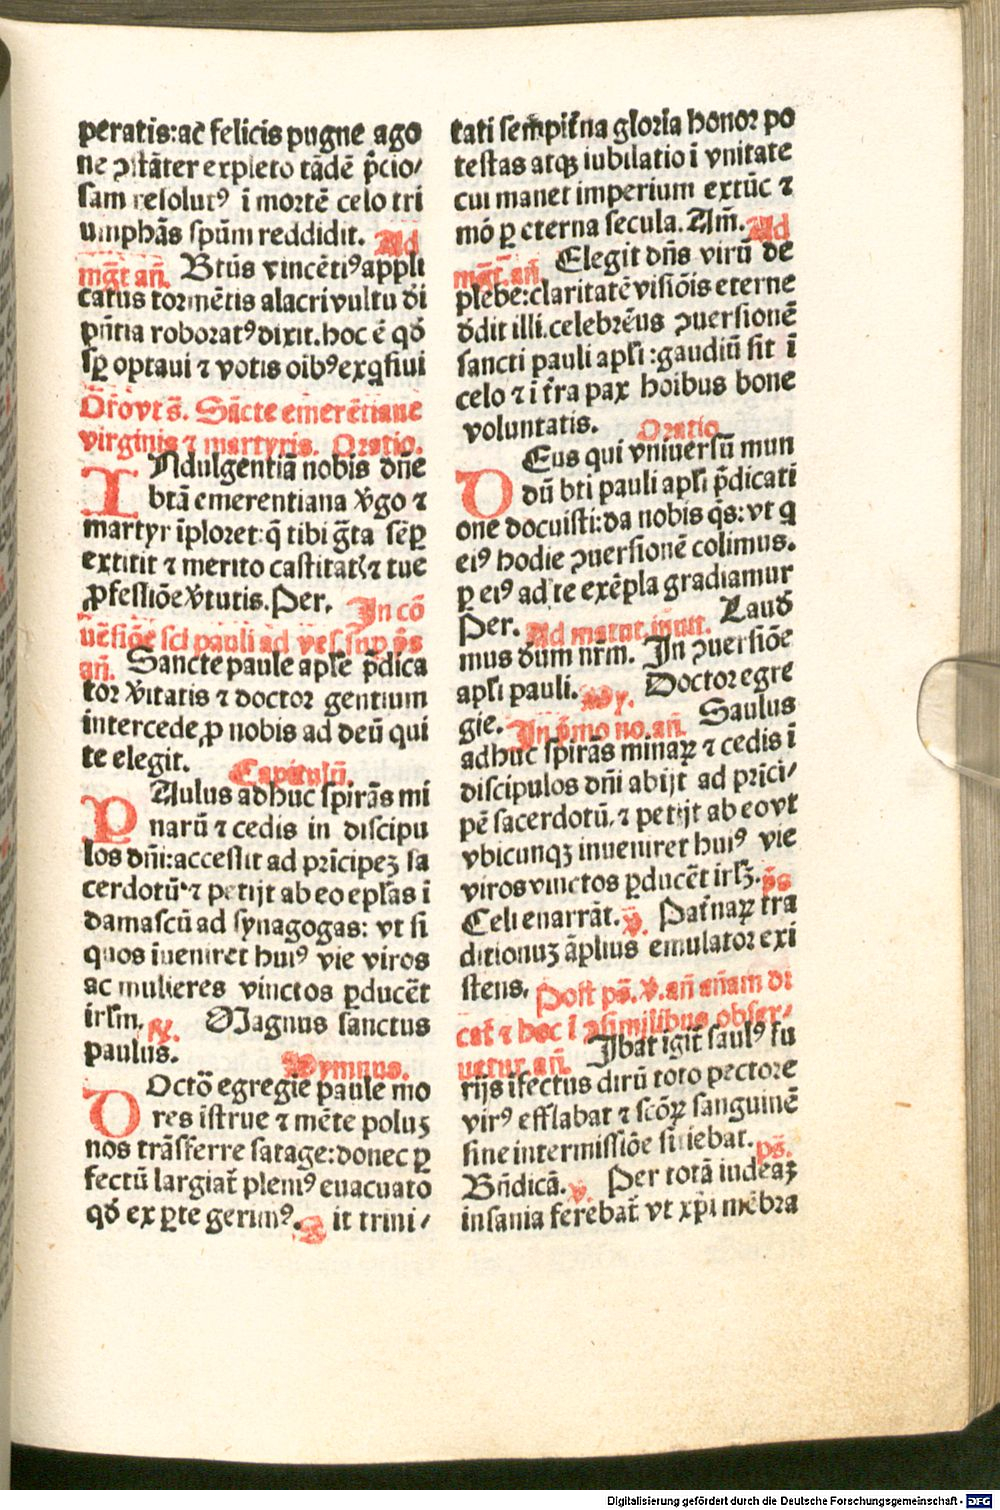 peratis: ac felicis pugne ago
ne ꝯstãter expleto tãdẽ p̃cio/
sam resolutꝰ ĩ mortẽ celo tri
umphãs spũm reddidit. Ad
mg̃t añ. Btũs vincẽtiꝰ appli
catus tormẽtis alacri vultu d̃i
p̃ntia roboratꝰ dixit. hoc ẽ qď
sꝑ optaui ⁊ votis oibꝰ exq̃siui
Ofo vt s̃. Sãcte emerẽtiane
virginis ⁊ martyris. Oratio.
INdulgentiã nobis dñe
btã emerentiana v̾go ⁊
martyr ĩploret: q̃ tibi g̃ta sẽꝑ
extitit ⁊ merito castitatꝭ ⁊ tue
ꝓfessiõe v̾tutis. Per. In cõ
uẽsiõe sci pauli ad ves. sup p̃s
añ. Sancte paule apl̃e p̃dica
tor v̾itatis ⁊ doctor gentium
intercede ꝓ nobis ad deũ qui
te elegit. Capitulũ.
PAulus adhuc spirãs mi
narũ ⁊ cedis in discipu
los dñi: accessit ad prĩcipeꝫ sa
cerdotũ ⁊ petijt ab eo epl̃as ĩ
damascũ ad synagogas: vt si
quos ĩueniret huiꝰ vie viros
ac mulieres vinctos ꝑducẽt
irl̃m. ℟. Magnus sanctus
paulus. Hymnus.
DOctõ egregie paule mo
res ĩstrue ⁊ mẽte poluꝫ
nos trãsferre satage: donec ꝑ
fectũ largiat̃ plenꝰ euacuato
qď ex ꝑte gerimꝰ. S it trini/
tati sempit̃na gloria honor po
testas atqꝫ iubilatio ĩ vnitate
cui manet imperium extũc ⁊
mõ ꝑ eterna secula. Am̃. Ad
mg̃t. añ. Elegit dñs virũ de
plebe: claritatẽ visiõis eterne
d̾dit illi. celebrẽus ꝯuersionẽ
sancti pauli apl̃i: gaudiũ sit ĩ
celo ⁊ i t̃ra pax hoibus bone
voluntatis. Oratio
DEus qui vniuersũ mun
dũ bti pauli apl̃i p̃dicati
one docuisti: da nobis q̃s: vt q
eiꝰ hodie ꝯuersionẽ colimus.
ꝑ eiꝰ ad te exẽpla gradiamur
Per. Ad matut. inuit. Laud̾
mus d̾um nr̃m. In ꝯuersiõe
apl̃i pauli. Hy. Doctor egre
gie. In p̃mo no. añ. Saulus
adhuc spirãs minaꝝ ⁊ cedis ĩ
discipulos dñi abijt ad prĩci/
pẽ sacerdotũ, ⁊ petijt ab eo vt
vbicunqꝫ inueniret huiꝰ vie
viros vinctos ꝑducẽt irl̃ꝫ. p̃s
Celi enarrãt. ℣. Pat̃naꝝ tra
ditionuꝫ ãplius emulator exi
stens. Post ps̃. ℣. añ añam di
cat̃ ⁊ hoc ĩ ꝯsimilibus obser/
uetur. añ. Ibat igit̃ saulꝰ fu
rijs ĩfectus dirũ toto pectore
virꝰ efflabat ⁊ scõꝝ sanguinẽ
sine intermissiõe sitiebat. ps̃.
Bñdicã. ℣. Per totã iudeaꝫ
insania ferebat̃ vt xp̃i mẽbra
Digitalisierung gefördert durch die Deutsche Forschungsgemeinschaft - DFG